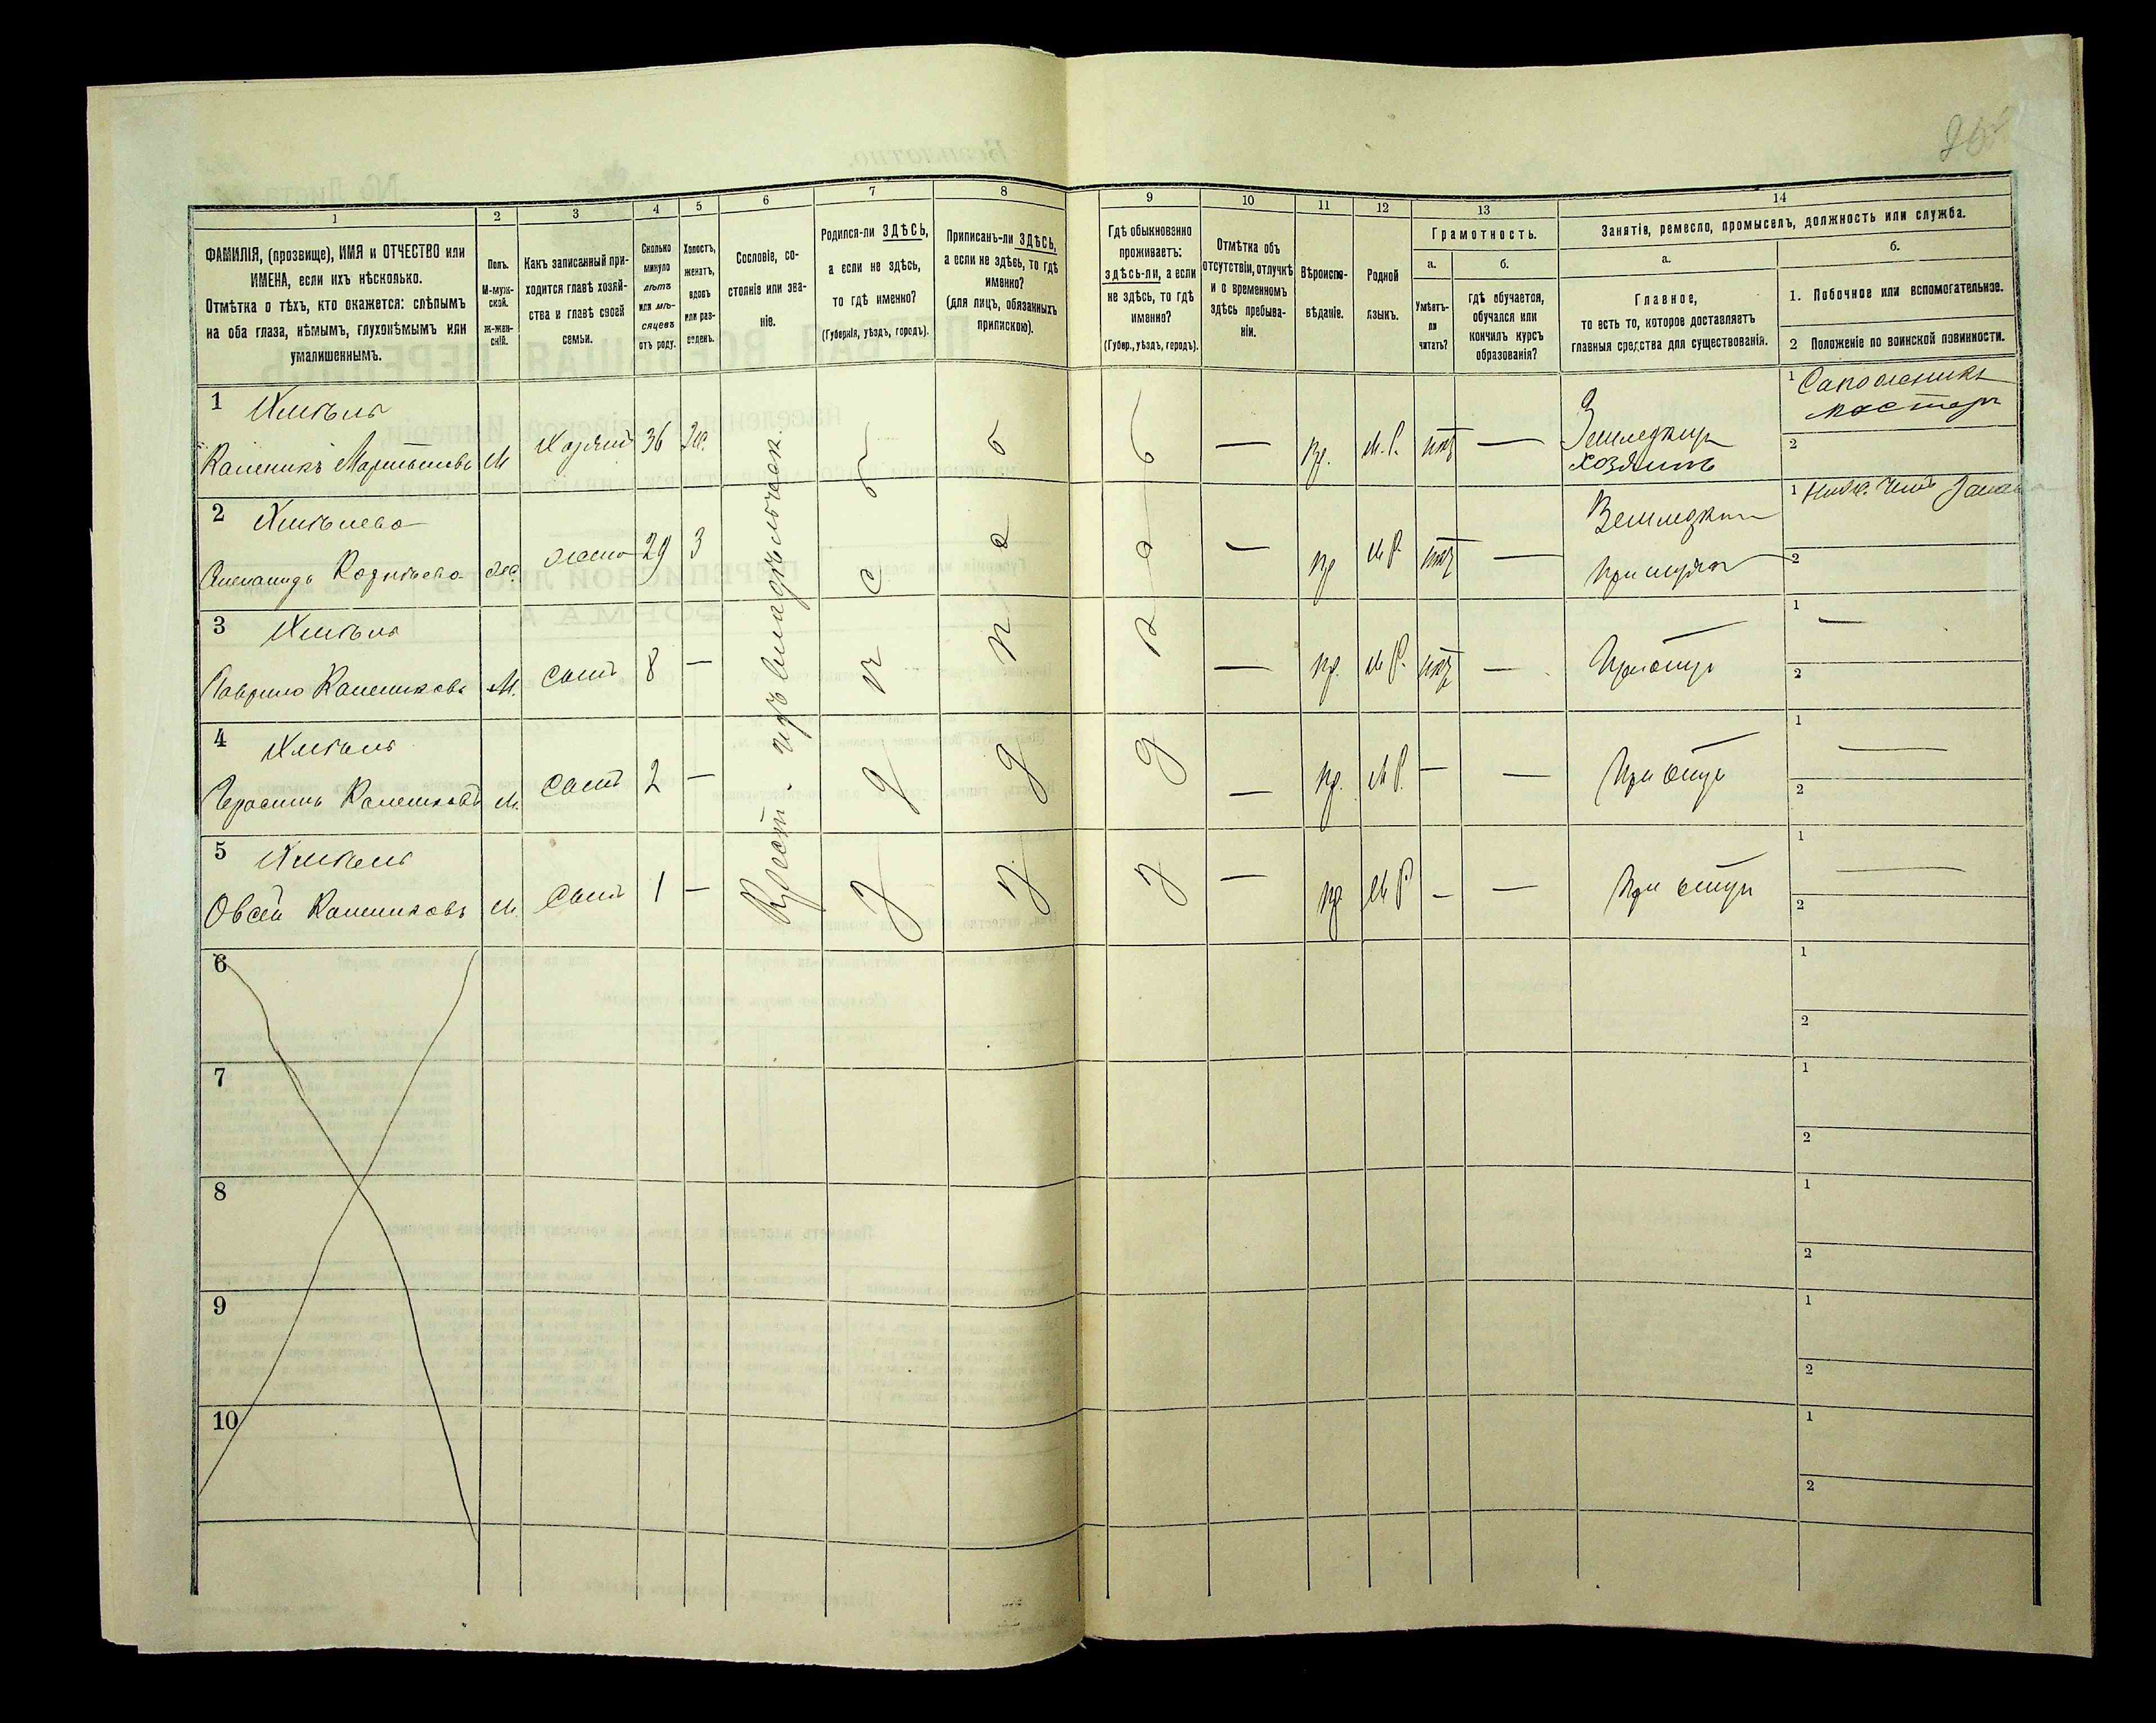 1 2 3 4 5 6 7 8 9 10 11 12 13 14
ФАМИЛІЯ, (прозвище), ИМЯ и ОТЧЕСТВО или
ИМЕНА, если ихъ нѣсколько.
Отмѣтка о тѣхъ, кто окажется: слѣпымъ
на оба глаза, нѣмымъ, глухонѣмымъ или
умалишеннымъ.
Полъ.
М-муж-
ской.
Ж-жен-
скій.
Какъ записанный при-
ходится главѣ хозяй-
ства и главѣ своей
семьи.
Сколько
минуло
лѣтъ
или мѣ-
сяцевъ
отъ роду.
Холостъ,
женатъ,
вдовъ
или раз-
веденъ.
Сословіе, со-
стояніе или зва-
ніе.
Родился-ли ЗДѢСЬ,
а если не здѣсь,
то гдѣ именно?
(Губернія, уѣздъ, городъ).
Приписанъ-ли ЗДѢСЬ,
а если не здѣсь, то гдѣ
именно?
(для лицъ, обязанныхъ
припискою).
Гдѣ обыкновенно
проживаетъ:
ЗДѢСЬ-ЛИ, а если
не здѣсь, то гдѣ
именно?
(Губер., уѣздъ, городъ).
Отмѣтка объ
отсутствіи, отлучкѣ
и о временномъ
здѣсь пребыва-
ніи.
Вѣроиспо-
вѣданіе.
Родной
языкъ.
Грамотность.
а.
Умѣетъ-
ли
читать?
б.
Гдѣ обучается,
обучался или
кончилъ курсъ
образованія?
Занятія, ремесло, промыселъ, должность или служба.
а.
Главное,
то есть то, которое доставляетъ
главныя средства для существованія.
б.
1. Побочное или вспомогательное.
2 Положеніе по воинской повинности.
1 Хмѣль
Каленикъ Мартыновъ М Хозяин 36 Ж. здѣсь здѣсь здѣсь — пр. М.Р. нѣт —
Земледѣлец
хозяинъ
1 Сапожникъ
мастеръ
2
Крест. изъ владѣльческ.
2 Хмѣлева
жена 29 З — пр М Р нѣт —
1
2
3 Хмѣль
Гаврило Калениковъ М. сынъ 8 — — пр. М Р. нѣт — При отцѣ
1 —
2
4 Хмѣль
Герасимъ Калениковъ М. сынъ 2 — — пр. М Р. — — При отцѣ
1 —
2
5 Хмѣль
Овсей Калениковъ М. сынъ 1 — — пр М Р — — При отцѣ
1 —
2
6
1
2
7
1
2
8
1
2
9
1
2
10
1
2